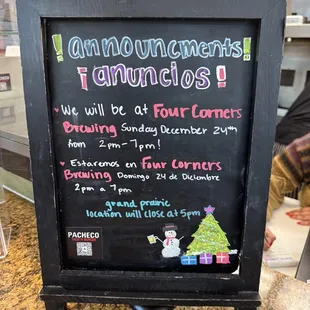 ! announcements!
¡anuncios!
We will be at Four Corners
Brewing Sunday December 24th
from 2pm-7pm!
Estaremos en Four Corners
Brewing Domingo 24 de Diciembre
2pm a 7pm
grand prairie
location will close at 5pm
PACHECO